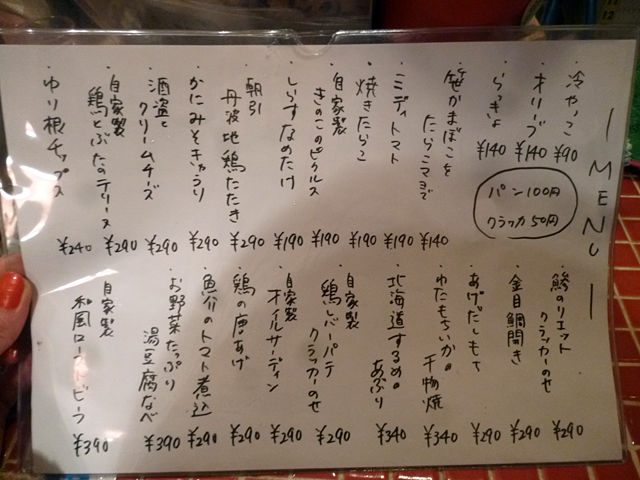 MENU
パン 100円
クラッカ 50円
・冷やっこ ¥90
・オリーブ ¥140
・らっきょ ¥140
・笹かまぼこを
たらこマヨで ¥140
・ミディトマト ¥190
・焼きたらこ ¥190
・自家製
きのこのピクルス ¥190
・しらすなめたけ ¥190
・朝引
丹波地鶏たたき ¥290
・かにみそきゅうり ¥290
・酒盗と
クリームチーズ ¥290
・自家製
鶏とぶたのテリーヌ ¥290
・ゆり根チップス ¥240
・鯵のリエット
クラッカーのせ ¥290
・金目鯛開き ¥290
・あげだしもち ¥290
・わたもちいかの
一干物焼 ¥340
・北海道するめの
あぶり ¥340
・自家製
鶏レバーパテ
クラッカーのせ ¥290
・自家製
オイルサーディン ¥290
・鶏の唐あげ ¥290
・魚介のトマト煮込 ¥290
・お野菜たっぷり
湯豆腐なべ ¥390
・自家製
和風ローストビーフ ¥390